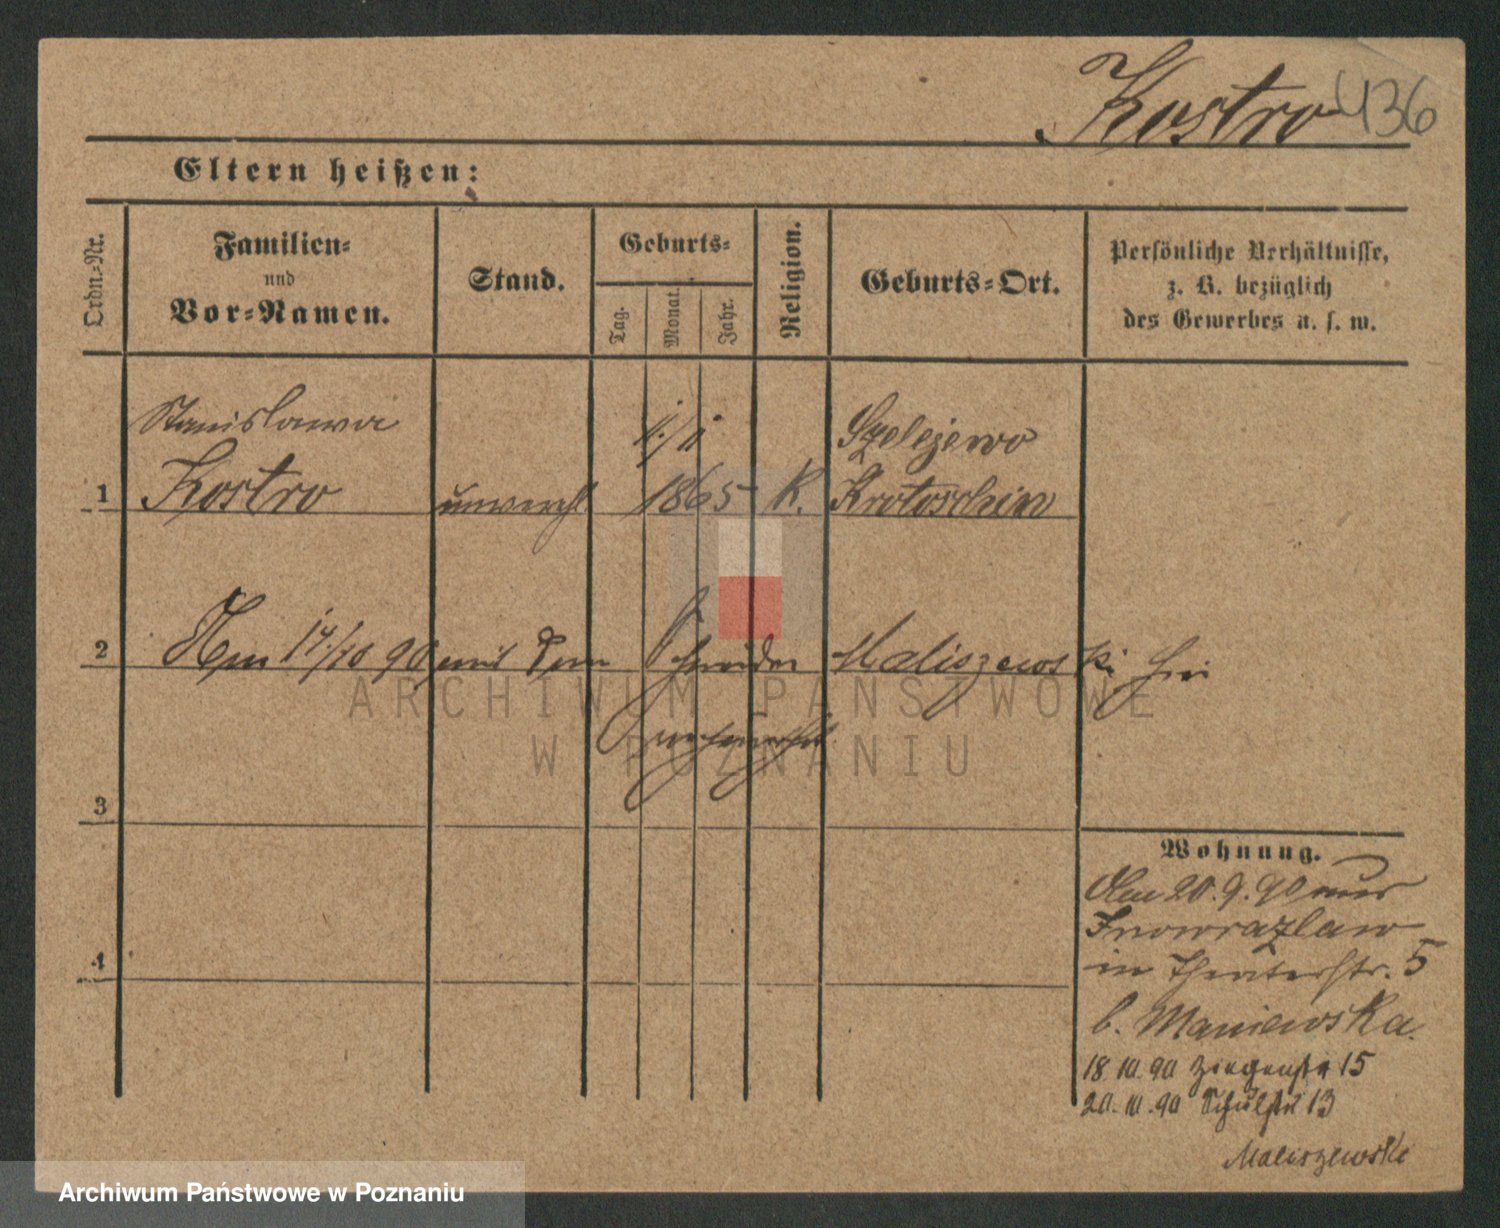 Kostro 436
Eltern heißen:
Ordn=Nr.
Familien=
und
Vor=Namen.
Stand.
Geburts=
Tag.
Monat.
Jahr.
Religion.
Geburts=Ort.
Persönliche Verhältnisse,
z. B. bezüglich
des Gewerbes u. s. w.
Stanislawa
Kostro
unverehl.
1865
K.
Szelejewo
Krotoschin
1
2
Am 14/10 90 mit dem Schneider Maliszewski hier
3
4
Wohnung.
Am 20.9.90 aus
Inowrazlaw
in Theaterstr. 5
b. Maniewska.
18.10.90 Ziegenstr 15
20.10.90 Schulstr 13
Maliszewski
ARCHIWUM PAŃSTWOWE
W POZNANIU
Archiwum Państwowe w Poznaniu